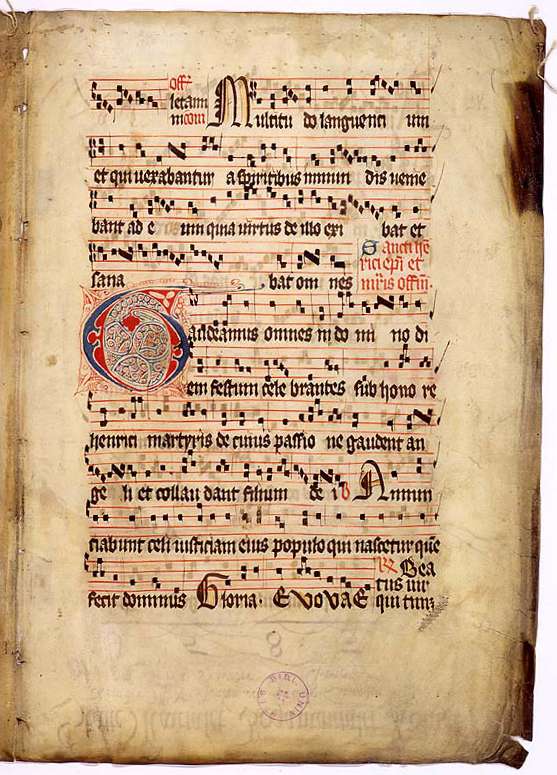 Off
letam
ini com Multitu do languenti um
et qui uexabantur a spiritibus inmun dis uenie
bant ad e um quia uirtus de illo exi bat et
sana bat om nes
Sancti he
rici epi et
mris offm
Gaudeamus omnes in do mi no di
em festum cele brantes sub hono re
henrici martyris de cuius passio ne gaudent an
ge li et collau dant filium de i v Annun
ciabunt celi iusticiam eius populo qui nascetur que
fecit dominus Gloria. EVOVAE
R Bea
tus uir
qui tim